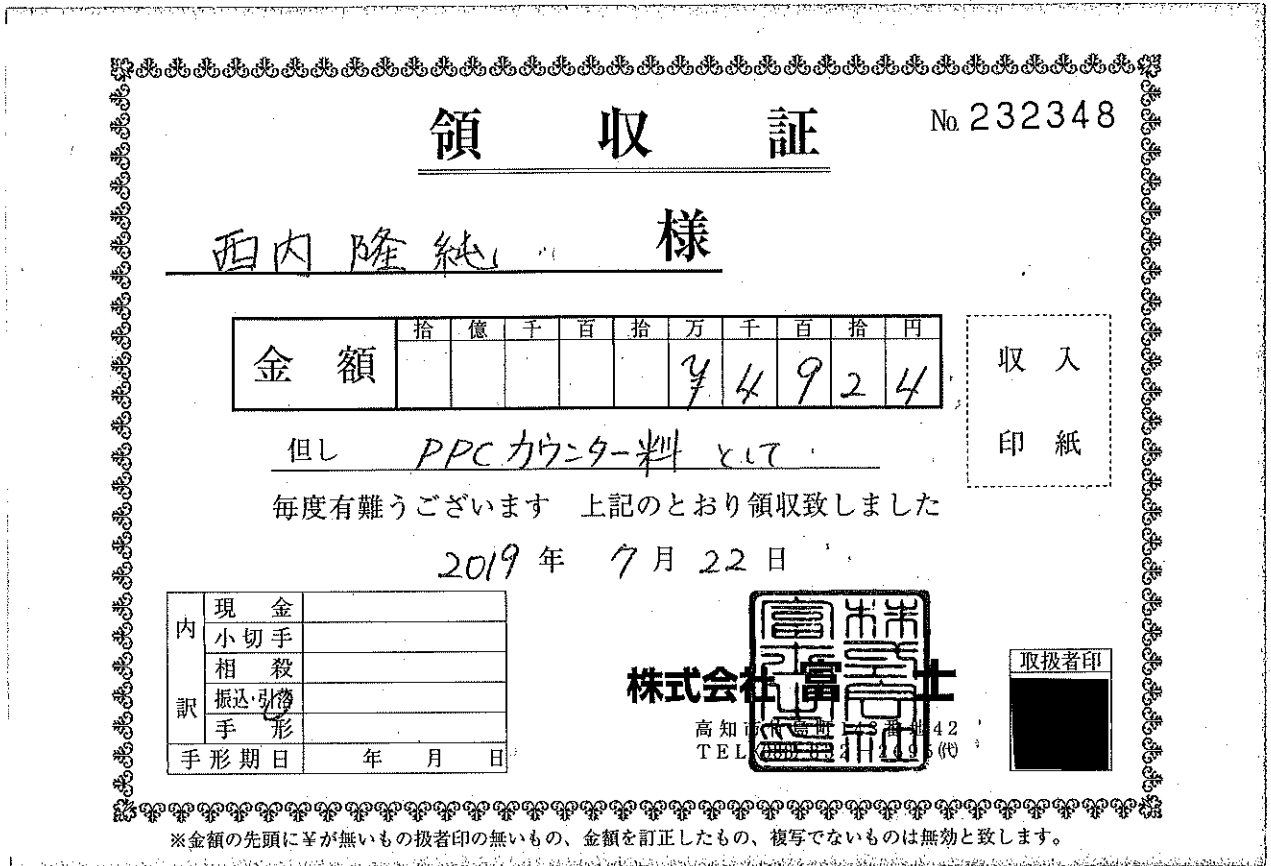 領収証
No. 232348
西内 隆純 様
金額
拾 億 千 百 拾 万 千 百 拾 円
¥ 4 9 2 4
収入
印紙
但し PPCカウンター料 として
毎度有難うございます 上記のとおり領収致しました
2019年 7月22日
内訳
現金
小切手
相殺
振込・引落
手形
手形期日 年 月 日
株式会社 富士
高知市
TEL
取扱者印
※金額の先頭に¥が無いもの扱者印の無いもの、金額を訂正したもの、複写でないものは無効と致します。